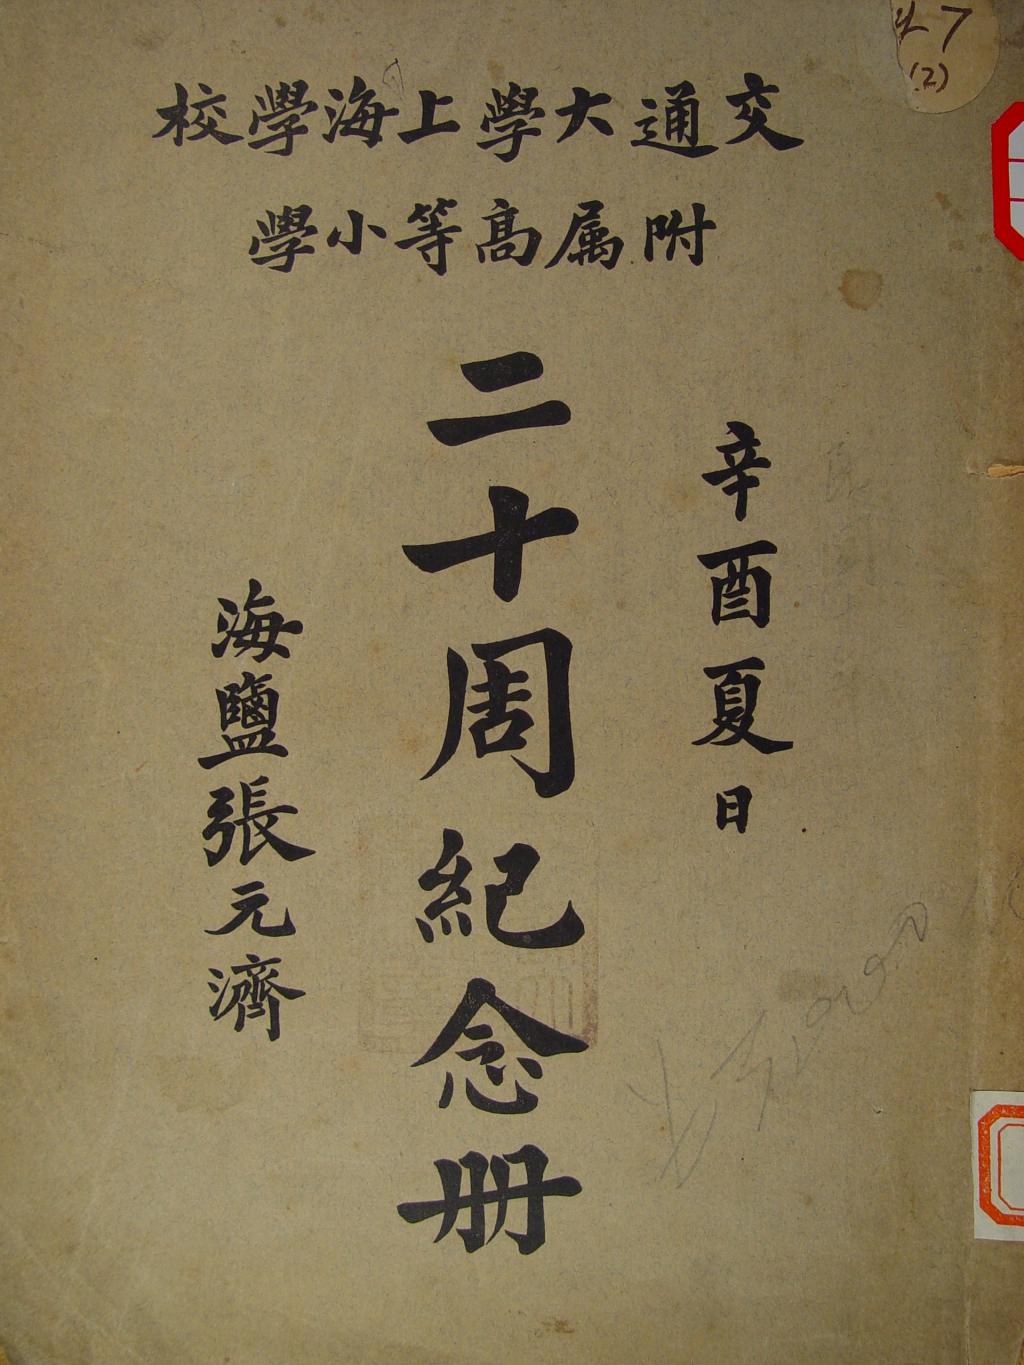 交通大學上海學校
附属高等小學
辛酉夏日
二十周紀念册
海鹽張元濟
(2)